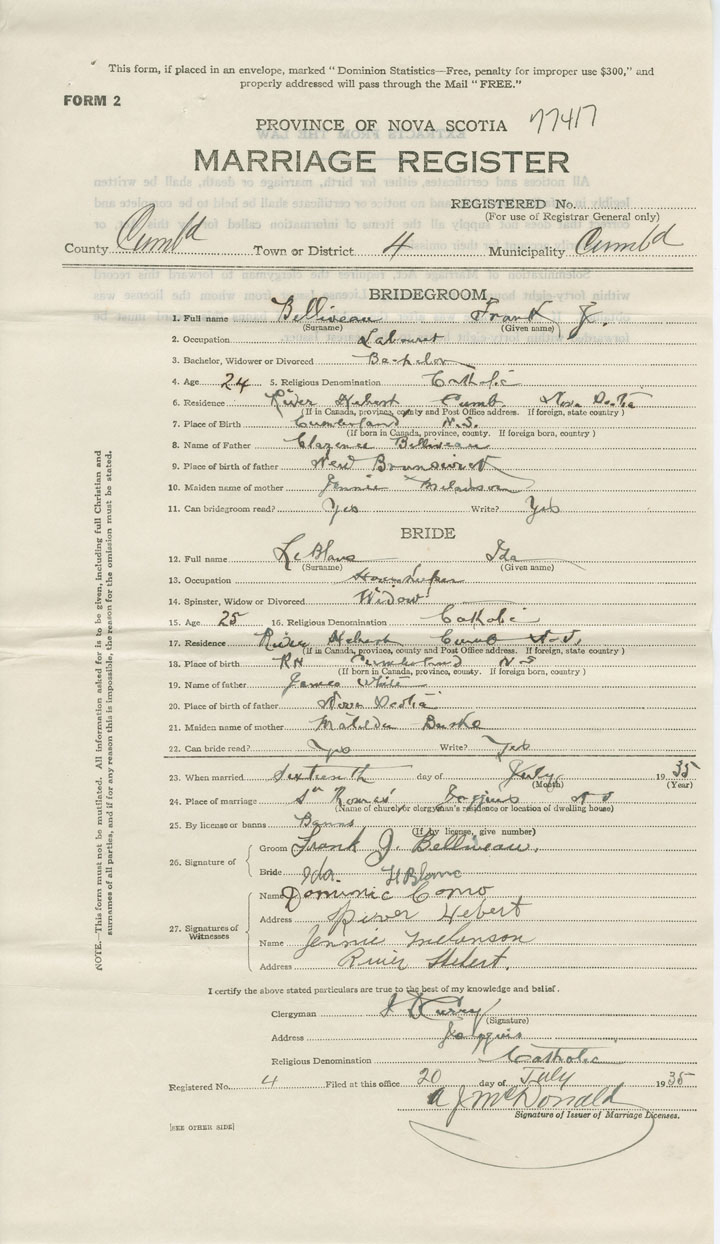 This form, if placed in an envelope, marked "Dominion Statistics—Free, penalty for improper use $300," and
properly addressed will pass through the Mail "FREE."
FORM 2
PROVINCE OF NOVA SCOTIA 77417
MARRIAGE REGISTER
REGISTERED No.
(For use of Registrar General only)
County Cumb'd Town or District 4 Municipality Cumb'd
BRIDEGROOM
1. Full name Belliveau Frank J.
(Surname) (Given name)
2. Occupation Labourer
3. Bachelor, Widower or Divorced Bachelor
4. Age 24 5. Religious Denomination Catholic
6. Residence River Hebert Cumb Nova Scotia
(If in Canada, province, county and Post Office address. If foreign, state country)
7. Place of Birth Cumberland N.S.
(If born in Canada, province, county. If foreign born, country)
8. Name of Father Clarence Belliveau
9. Place of birth of father New Brunswick
10. Maiden name of mother Jennie
11. Can bridegroom read? Yes Write? Yes
BRIDE
12. Full name LeBlanc Ida
(Surname) (Given name)
13. Occupation Housekeeper
14. Spinster, Widow or Divorced Widow
15. Age 25 16. Religious Denomination Catholic
17. Residence River Hebert Cumb N.S.
(If in Canada, province, county and Post Office address. If foreign, state country)
18. Place of birth RH Cumberland N S
(If born in Canada, province, county. If foreign born, country)
19. Name of father James White
20. Place of birth of father Nova Scotia
21. Maiden name of mother Matilda Burke
22. Can bride read? Yes Write? Yes
23. When married Sixteenth day of July 1935
(Month) (Year)
24. Place of marriage Joggins N S
(Name of church or clergyman's residence or location of dwelling house)
25. By license or banns Banns
(If by license, give number)
26. Signature of
Groom Frank J. Belliveau.
Bride Ida
27. Signatures of Witnesses
Name Dominic Como
Address River Hebert
Name Jennie
Address River Hebert.
I certify the above stated particulars are true to the best of my knowledge and belief.
Clergyman Curry
(Signature)
Address Joggins
Religious Denomination Catholic
Registered No. 4 Filed at this office 20 day of July 1935
A J McDonald
Signature of Issuer of Marriage Licenses.
[SEE OTHER SIDE]
NOTE.—This form must not be mutilated. All information asked for is to be given, including full Christian and
surnames of all parties, and if for any reason this is impossible, the reason for the omission must be stated.